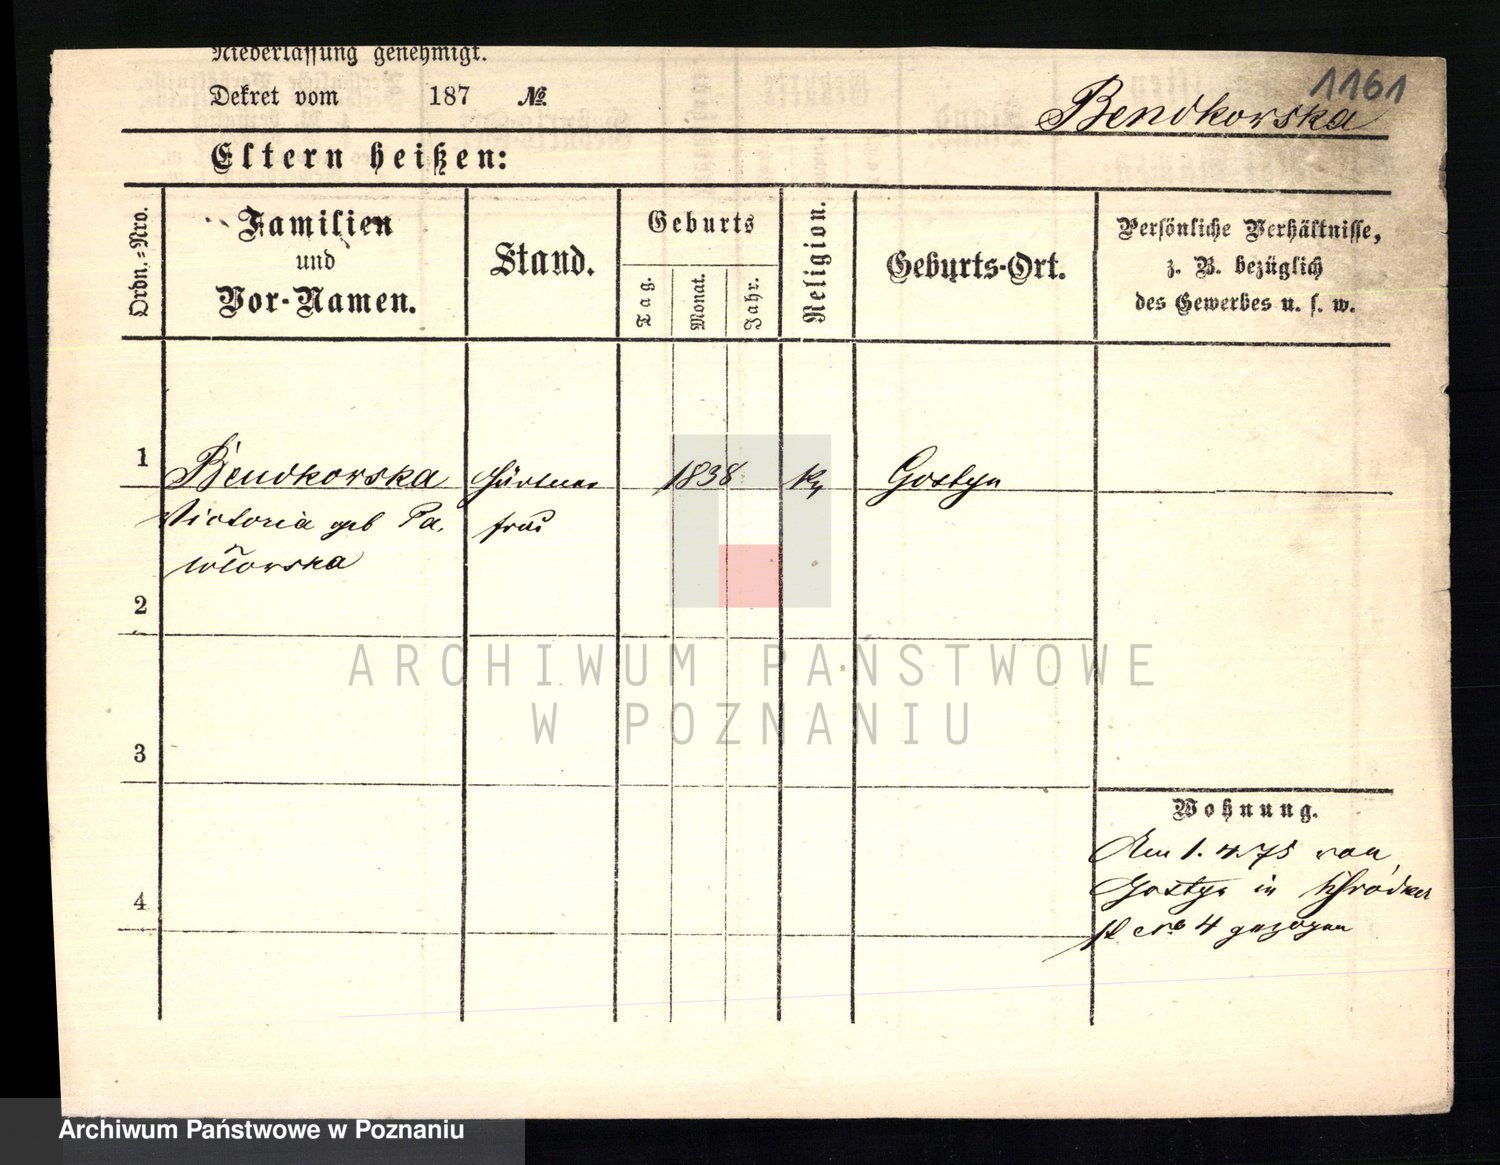 Niederlassung genehmigt.
1161
Dekret vom 187 №
Bendkorska
Eltern heißen:
Ordn.=Nro.
Familien
und
Vor-Namen.
Stand.
Geburts
Tag.
Monat.
Jahr.
Religion.
Geburts-Ort.
Persönliche Verhältnisse,
z. B. bezüglich
des Gewerbes u. s. w.
1 Bendkorska Gärtner 1838 Gostyn
Victoria geb Pa. frau
wlowska
2
ARCHIWUM PAŃSTWOWE
W POZNANIU
3
Wohnung.
Am 1. 4. 75 von
Gostyn in Schrodker
No 4 gezogen
4
Archiwum Państwowe w Poznaniu